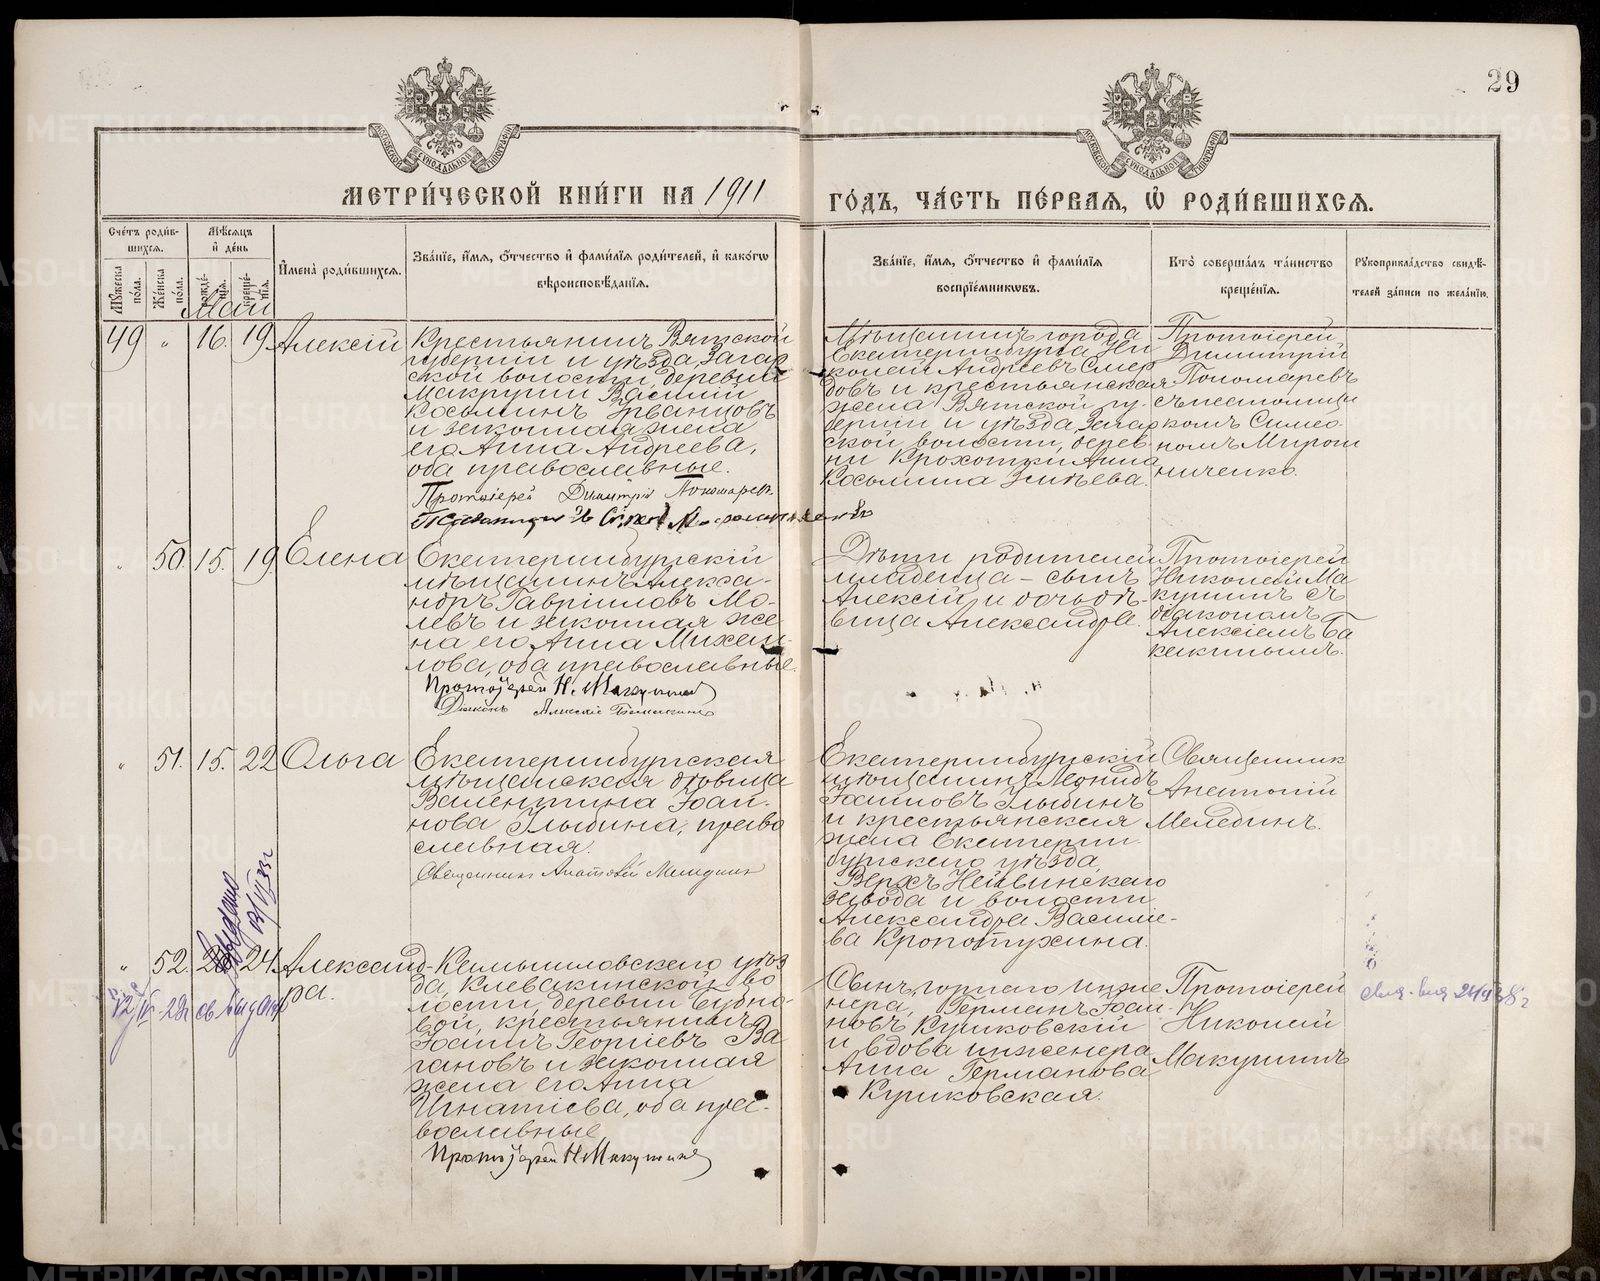 29
МОСКОВСКОЙ СѴНОДАЛЬНОЙ ТИПОГРАФІИ
МОСКОВСКОЙ СѴНОДАЛЬНОЙ ТИПОГРАФІИ
МЕТРИ́ЧЕСКОЙ КНИ́ГИ НА 1911
ГО́ДЪ, ЧА́СТЬ ПЕ́РВАѦ, Ѡ҆ РОДИ́ВШИХСѦ.
Сче́тъ роди́в-
шихсѧ.
Мꙋ́жеска по́ла.
Же́нска по́ла.
Мѣ́сѧцъ и҆ де́нь
рожде́-нїѧ.
креще́-нїѧ.
И҆мена̀ роди́вшихсѧ.
Зва́нїе, и҆́мѧ, ѻ҆́тчество и҆ фами́лїѧ роди́телей, и҆ како́гѡ
вѣроисповѣ́данїѧ.
Зва́нїе, и҆́мѧ, ѻ҆́тчество и҆ фами́лїѧ
воспрїе́мникѡвъ.
Кто̀ соверша́лъ та́инство
креще́нїѧ.
Рꙋкоприкла́дство свидѣ́-
телей за́писи по жела́нїю.
Май
49 " 16. 19 Алексій
Крестьянинъ Вятской
губерніи и уѣзда, Загар
ской волости, деревни
Макруши Василій
Косьминъ Урванцовъ
и законная жена
его Анна Андреева,
оба православные.
Протоіерей Димитрій Пономаревъ
Мѣщанинъ города
Екатеринбурга Ни
колай Андреевъ Смер
довъ и крестьянская
жена Вятской гу-
берніи и уѣзда, Загар
ской волости, дерев-
ни Крохоткий Анна
Косьмина Зитева.
Протоіерей
Димитрій
Пономаревъ
съ псаломщи
комъ Симео
номъ Мирош
ниченко.
" 50. 15. 19 Елена
Екатеринбургскій
мѣщанинъ Алекса-
ндръ Гавріиловъ Мо-
левъ и законная же-
на его Анна Михаи-
лова, оба православные.
Протоіерей Н. Макушинъ
Діаконъ Алексій Бакакинъ
Дѣти родителей
младенца - сынъ
Алексій и дочь дѣ-
вица Александра.
Протоіерей
Николай Ма
кушинъ съ
діакономъ
Алексіемъ Ба
какинымъ.
" 51. 15. 22 Ольга
Екатеринбургская
мѣщанская дѣвица
Валентина Іоан-
нова Ильина, право
славная.
Священникъ Анатолій Мелединъ
Екатеринбургскій
мѣщанинъ Леонидъ
Іоанновъ Ильинъ
и крестьянская
жена Екатерин
бургскаго уѣзда,
Верхъ Нейвинскаго
завода и волости
Александра Василіе-
ва Кропотухина.
Священник
Анатолій
Мелединъ.
" 52. 24. Александ-
ра.
Камышловскаго уѣз
да, Клевакинской во
лости, деревни Бубно-
вой, крестьянинъ
Іоаннъ Георгіевъ Ва
гановъ и законная
жена его Анна
Игнатіева, оба пра-
вославные
Протоіерей Н. Макушинъ
Сынъ горнаго инже
нера, Германъ Іоан-
новъ Кушковскій
и вдова инженера
Анна Германова
Кушковская.
Протоіерей
Николай
Макушинъ